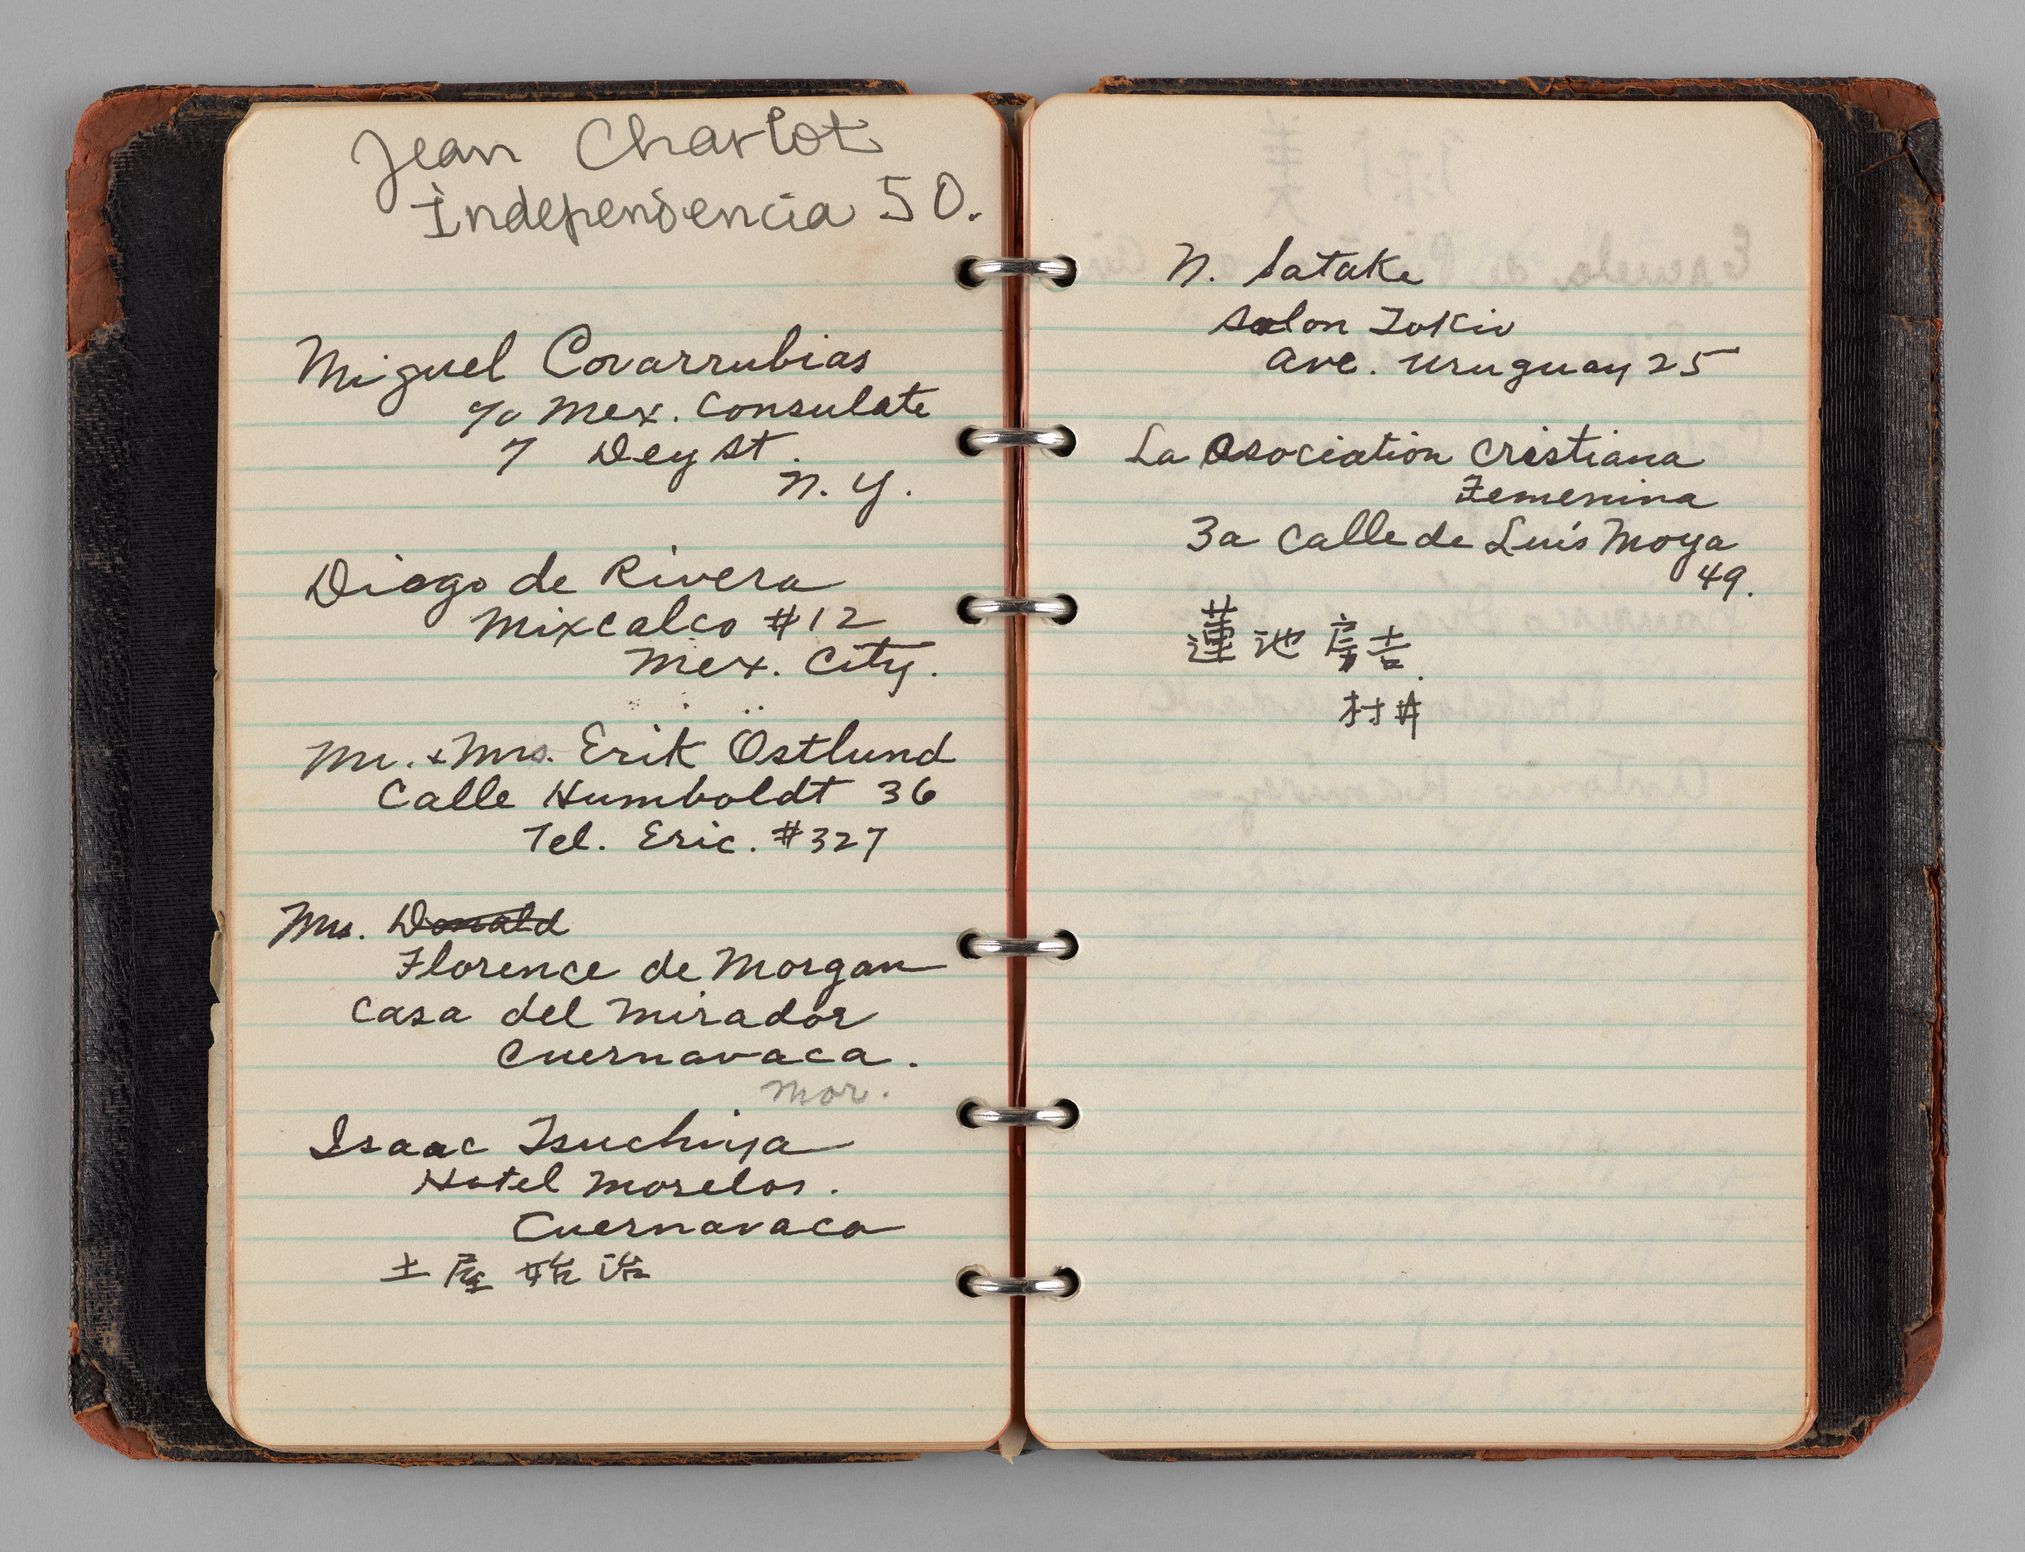 Jean Charlot
Independencia 50.
Miguel Covarrubias
c/o Mex. Consulate
7 Dey St.
N. Y.
Diego de Rivera
Mixcalco #12
Mex. City.
Mr. + Mrs. Erik Östlund
Calle Humboldt 36
Tel. Eric. #327
Mrs. Donald
Florence de Morgan
Casa del Mirador
Cuernavaca.
Mor.
Isaac Tsuchiya
Hotel Morelos.
Cuernavaca
土屋 始治
N. Satake
Salon Tokio
Ave. Uruguay 25
La Asociation Cristiana
Femenina
3a Calle de Luis Moya
49.
蓮池 房吉.
村井